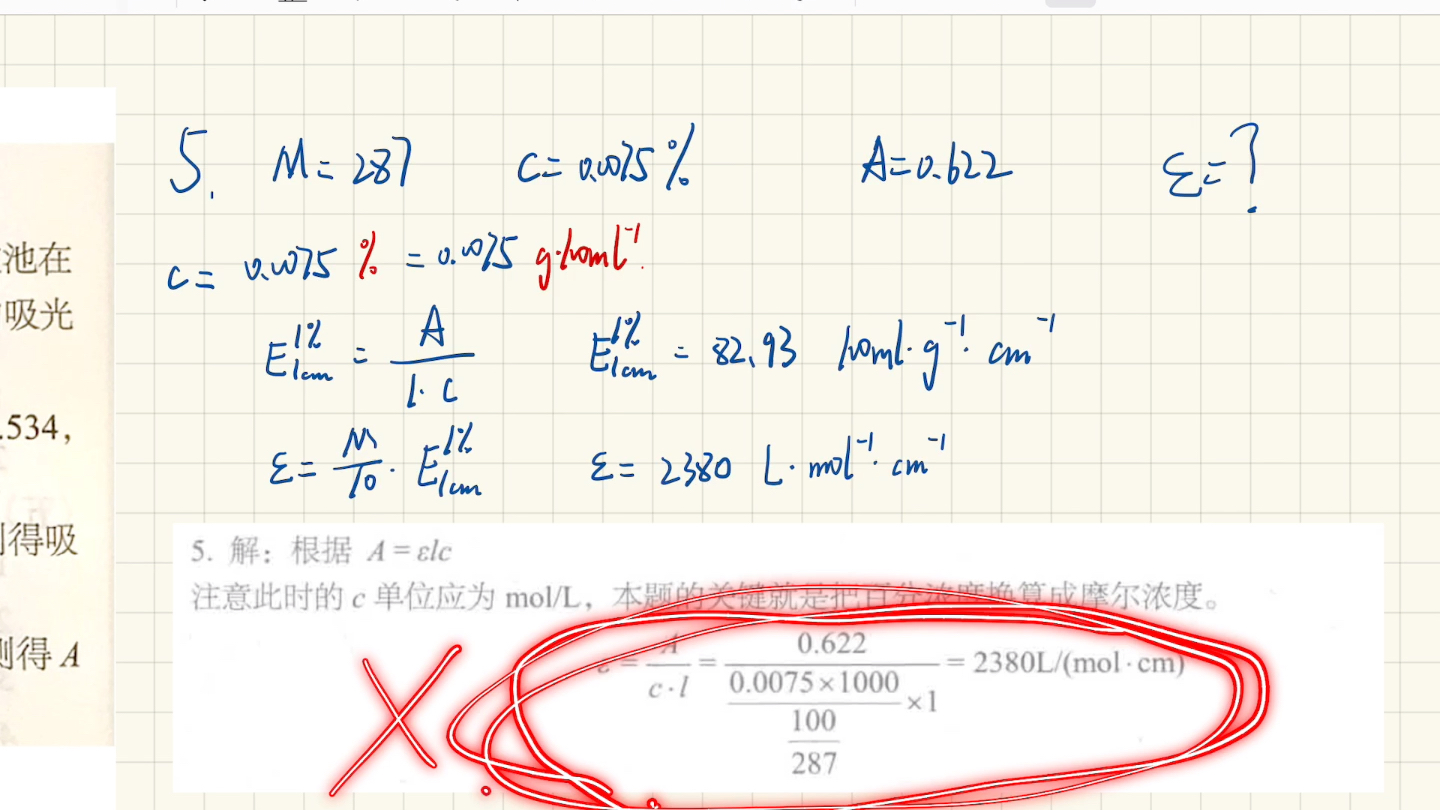 池在
吸光
.534,
得吸
测得 A
5. M = 287 C = 0.0075 % A = 0.622 ε = ?
C = 0.0075 % = 0.0075 g·100ml⁻¹.
E₁cm^1% = A / l·C E₁cm^1% = 82.93 100ml·g⁻¹·cm⁻¹
ε = M/10 · E₁cm^1% ε = 2380 L·mol⁻¹·cm⁻¹
5. 解：根据 A = εlc
注意此时的 c 单位应为 mol/L，本题的关键就是把百分浓度换算成摩尔浓度。
ε = A / c·l = 0.622 / (0.0075×1000 / 100 / 287 ×1) = 2380L/(mol·cm)